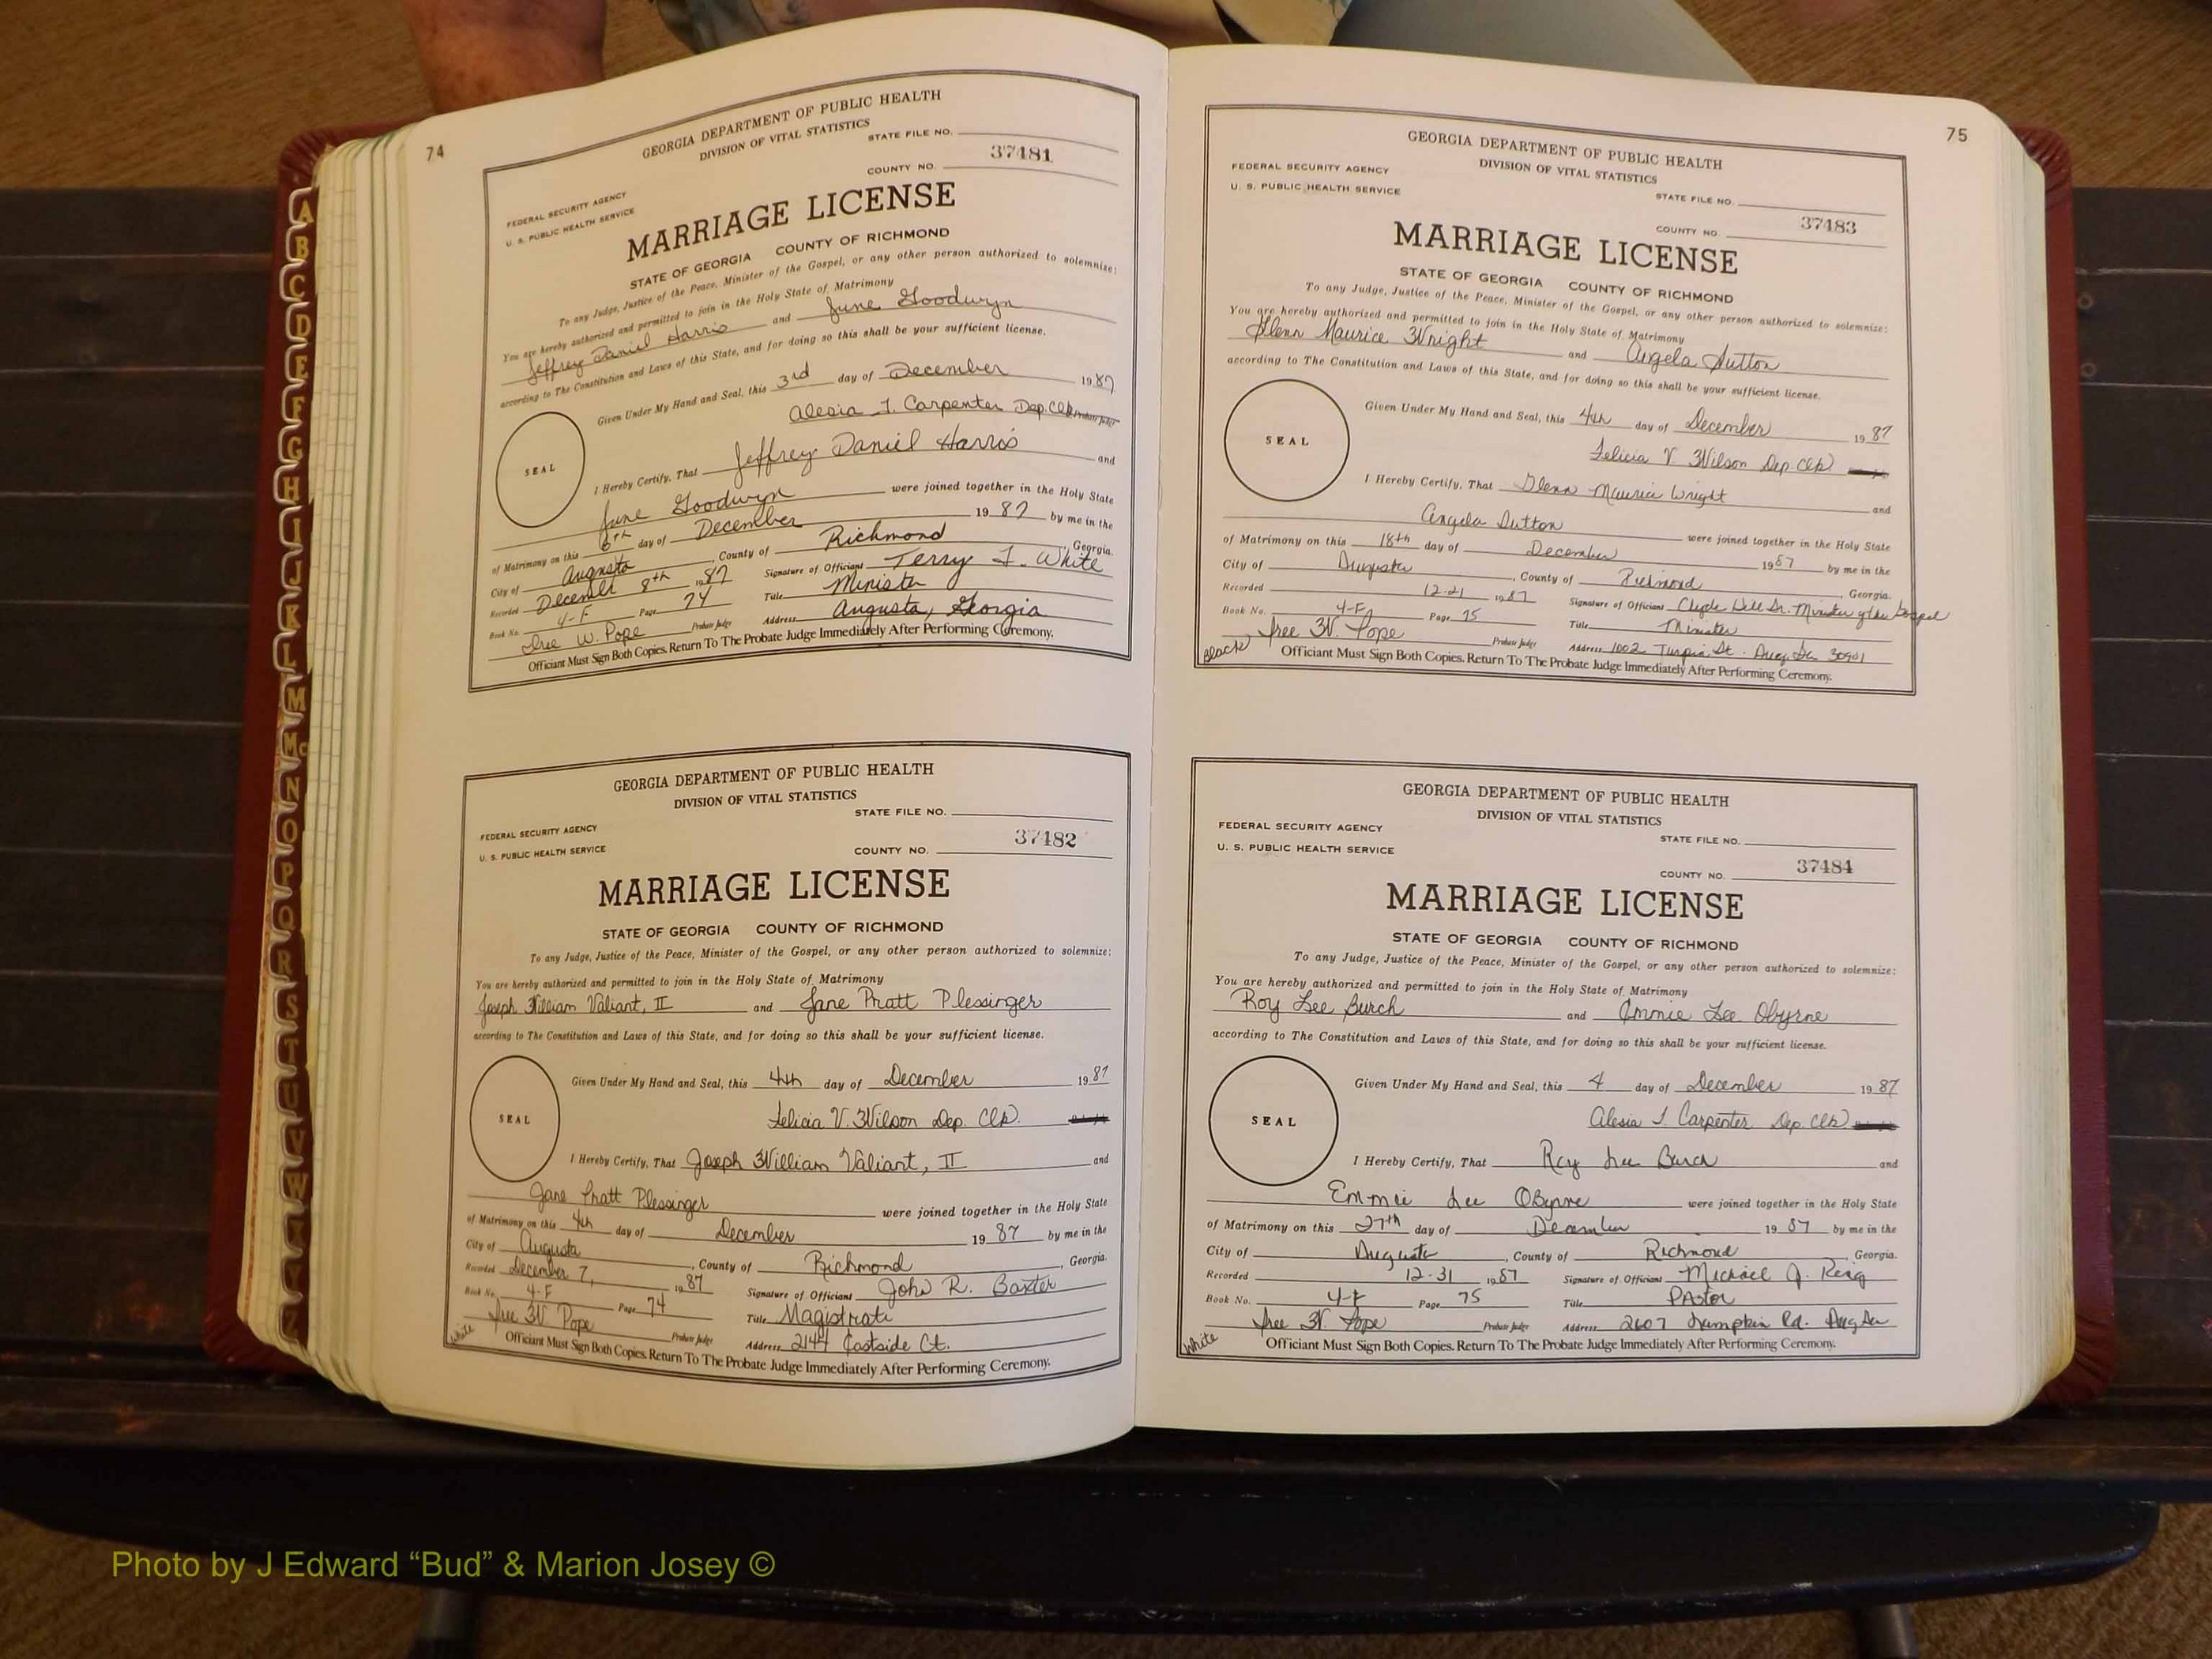 74
GEORGIA DEPARTMENT OF PUBLIC HEALTH
DIVISION OF VITAL STATISTICS
STATE FILE NO.
37481
COUNTY NO.
FEDERAL SECURITY AGENCY
U. S. PUBLIC HEALTH SERVICE
MARRIAGE LICENSE
STATE OF GEORGIA COUNTY OF RICHMOND
To any Judge, Justice of the Peace, Minister of the Gospel, or any other person authorized to solemnize:
You are hereby authorized and permitted to join in the Holy State of Matrimony
Jeffrey Daniel Harris and June Goodwyn
according to The Constitution and Laws of this State, and for doing so this shall be your sufficient license.
Given Under My Hand and Seal, this 3rd day of December 1987
Alesia T. Carpenter Dep. Clk Probate Judge
SEAL
I Hereby Certify, That Jeffrey Daniel Harris and
June Goodwyn were joined together in the Holy State
of Matrimony on this 6th day of December 1987 by me in the
City of Augusta, County of Richmond Georgia.
Recorded December 8th 1987 Signature of Officiant Terry L. White
Book No. 4-F Page 74 Title Minister
W. Pope Probate Judge Address Augusta, Georgia
Officiant Must Sign Both Copies. Return To The Probate Judge Immediately After Performing Ceremony.
GEORGIA DEPARTMENT OF PUBLIC HEALTH
DIVISION OF VITAL STATISTICS
STATE FILE NO.
FEDERAL SECURITY AGENCY
37482
U. S. PUBLIC HEALTH SERVICE
COUNTY NO.
MARRIAGE LICENSE
STATE OF GEORGIA COUNTY OF RICHMOND
To any Judge, Justice of the Peace, Minister of the Gospel, or any other person authorized to solemnize:
You are hereby authorized and permitted to join in the Holy State of Matrimony
Joseph William Valiant, II and Jane Pratt Plessinger
according to The Constitution and Laws of this State, and for doing so this shall be your sufficient license.
Given Under My Hand and Seal, this 4th day of December 1987
Felicia V. Wilson Dep. Clk.
SEAL
I Hereby Certify, That Joseph William Valiant, II and
Jane Pratt Plessinger were joined together in the Holy State
of Matrimony on this 4th day of December 1987 by me in the
City of Augusta, County of Richmond, Georgia.
Recorded December 7, 1987 Signature of Officiant John R. Baxter
Book No. 4-F Page 74 Title Magistrate
W. Pope Probate Judge Address 2144 Eastside Ct.
White Officiant Must Sign Both Copies. Return To The Probate Judge Immediately After Performing Ceremony.
75
GEORGIA DEPARTMENT OF PUBLIC HEALTH
DIVISION OF VITAL STATISTICS
FEDERAL SECURITY AGENCY
U. S. PUBLIC HEALTH SERVICE
STATE FILE NO.
37483
COUNTY NO.
MARRIAGE LICENSE
STATE OF GEORGIA COUNTY OF RICHMOND
To any Judge, Justice of the Peace, Minister of the Gospel, or any other person authorized to solemnize:
You are hereby authorized and permitted to join in the Holy State of Matrimony
Glenn Maurice Wright and Angela Sutton
according to The Constitution and Laws of this State, and for doing so this shall be your sufficient license.
Given Under My Hand and Seal, this 4th day of December 1987
Felicia V. Wilson Dep. Clk
SEAL
I Hereby Certify, That Glenn Maurice Wright and
Angela Sutton were joined together in the Holy State
of Matrimony on this 18th day of December 1987 by me in the
City of Augusta, County of Richmond, Georgia.
Recorded 12-21 1987 Signature of Officiant Clyde Hill Sr. Minister of the Gospel
Book No. 4-F Page 75 Title Minister
W. Pope Probate Judge Address 1002 Turpin St. Aug Ga 30901
Black Officiant Must Sign Both Copies. Return To The Probate Judge Immediately After Performing Ceremony.
GEORGIA DEPARTMENT OF PUBLIC HEALTH
DIVISION OF VITAL STATISTICS
FEDERAL SECURITY AGENCY
STATE FILE NO.
U. S. PUBLIC HEALTH SERVICE
37484
COUNTY NO.
MARRIAGE LICENSE
STATE OF GEORGIA COUNTY OF RICHMOND
To any Judge, Justice of the Peace, Minister of the Gospel, or any other person authorized to solemnize:
You are hereby authorized and permitted to join in the Holy State of Matrimony
Roy Lee Burch and Emmie Lee Obyrne
according to The Constitution and Laws of this State, and for doing so this shall be your sufficient license.
Given Under My Hand and Seal, this 4 day of December 1987
Alesia T. Carpenter Dep. Clk
SEAL
I Hereby Certify, That Roy Lee Burch and
Emmie Lee OByrne were joined together in the Holy State
of Matrimony on this 27th day of December 1987 by me in the
City of Augusta, County of Richmond, Georgia.
Recorded 12-31 1987 Signature of Officiant Michael J.
Book No. 4-F Page 75 Title Pastor
W. Pope Probate Judge Address 2607 Lumpkin Rd. Aug Ga
White Officiant Must Sign Both Copies. Return To The Probate Judge Immediately After Performing Ceremony.
A
B
C
D
E
F
G
H
I
J
K
L
M
Mc
N
O
P
Q
R
S
T
U
V
W
X
Y
Z
Photo by J Edward “Bud” & Marion Josey ©